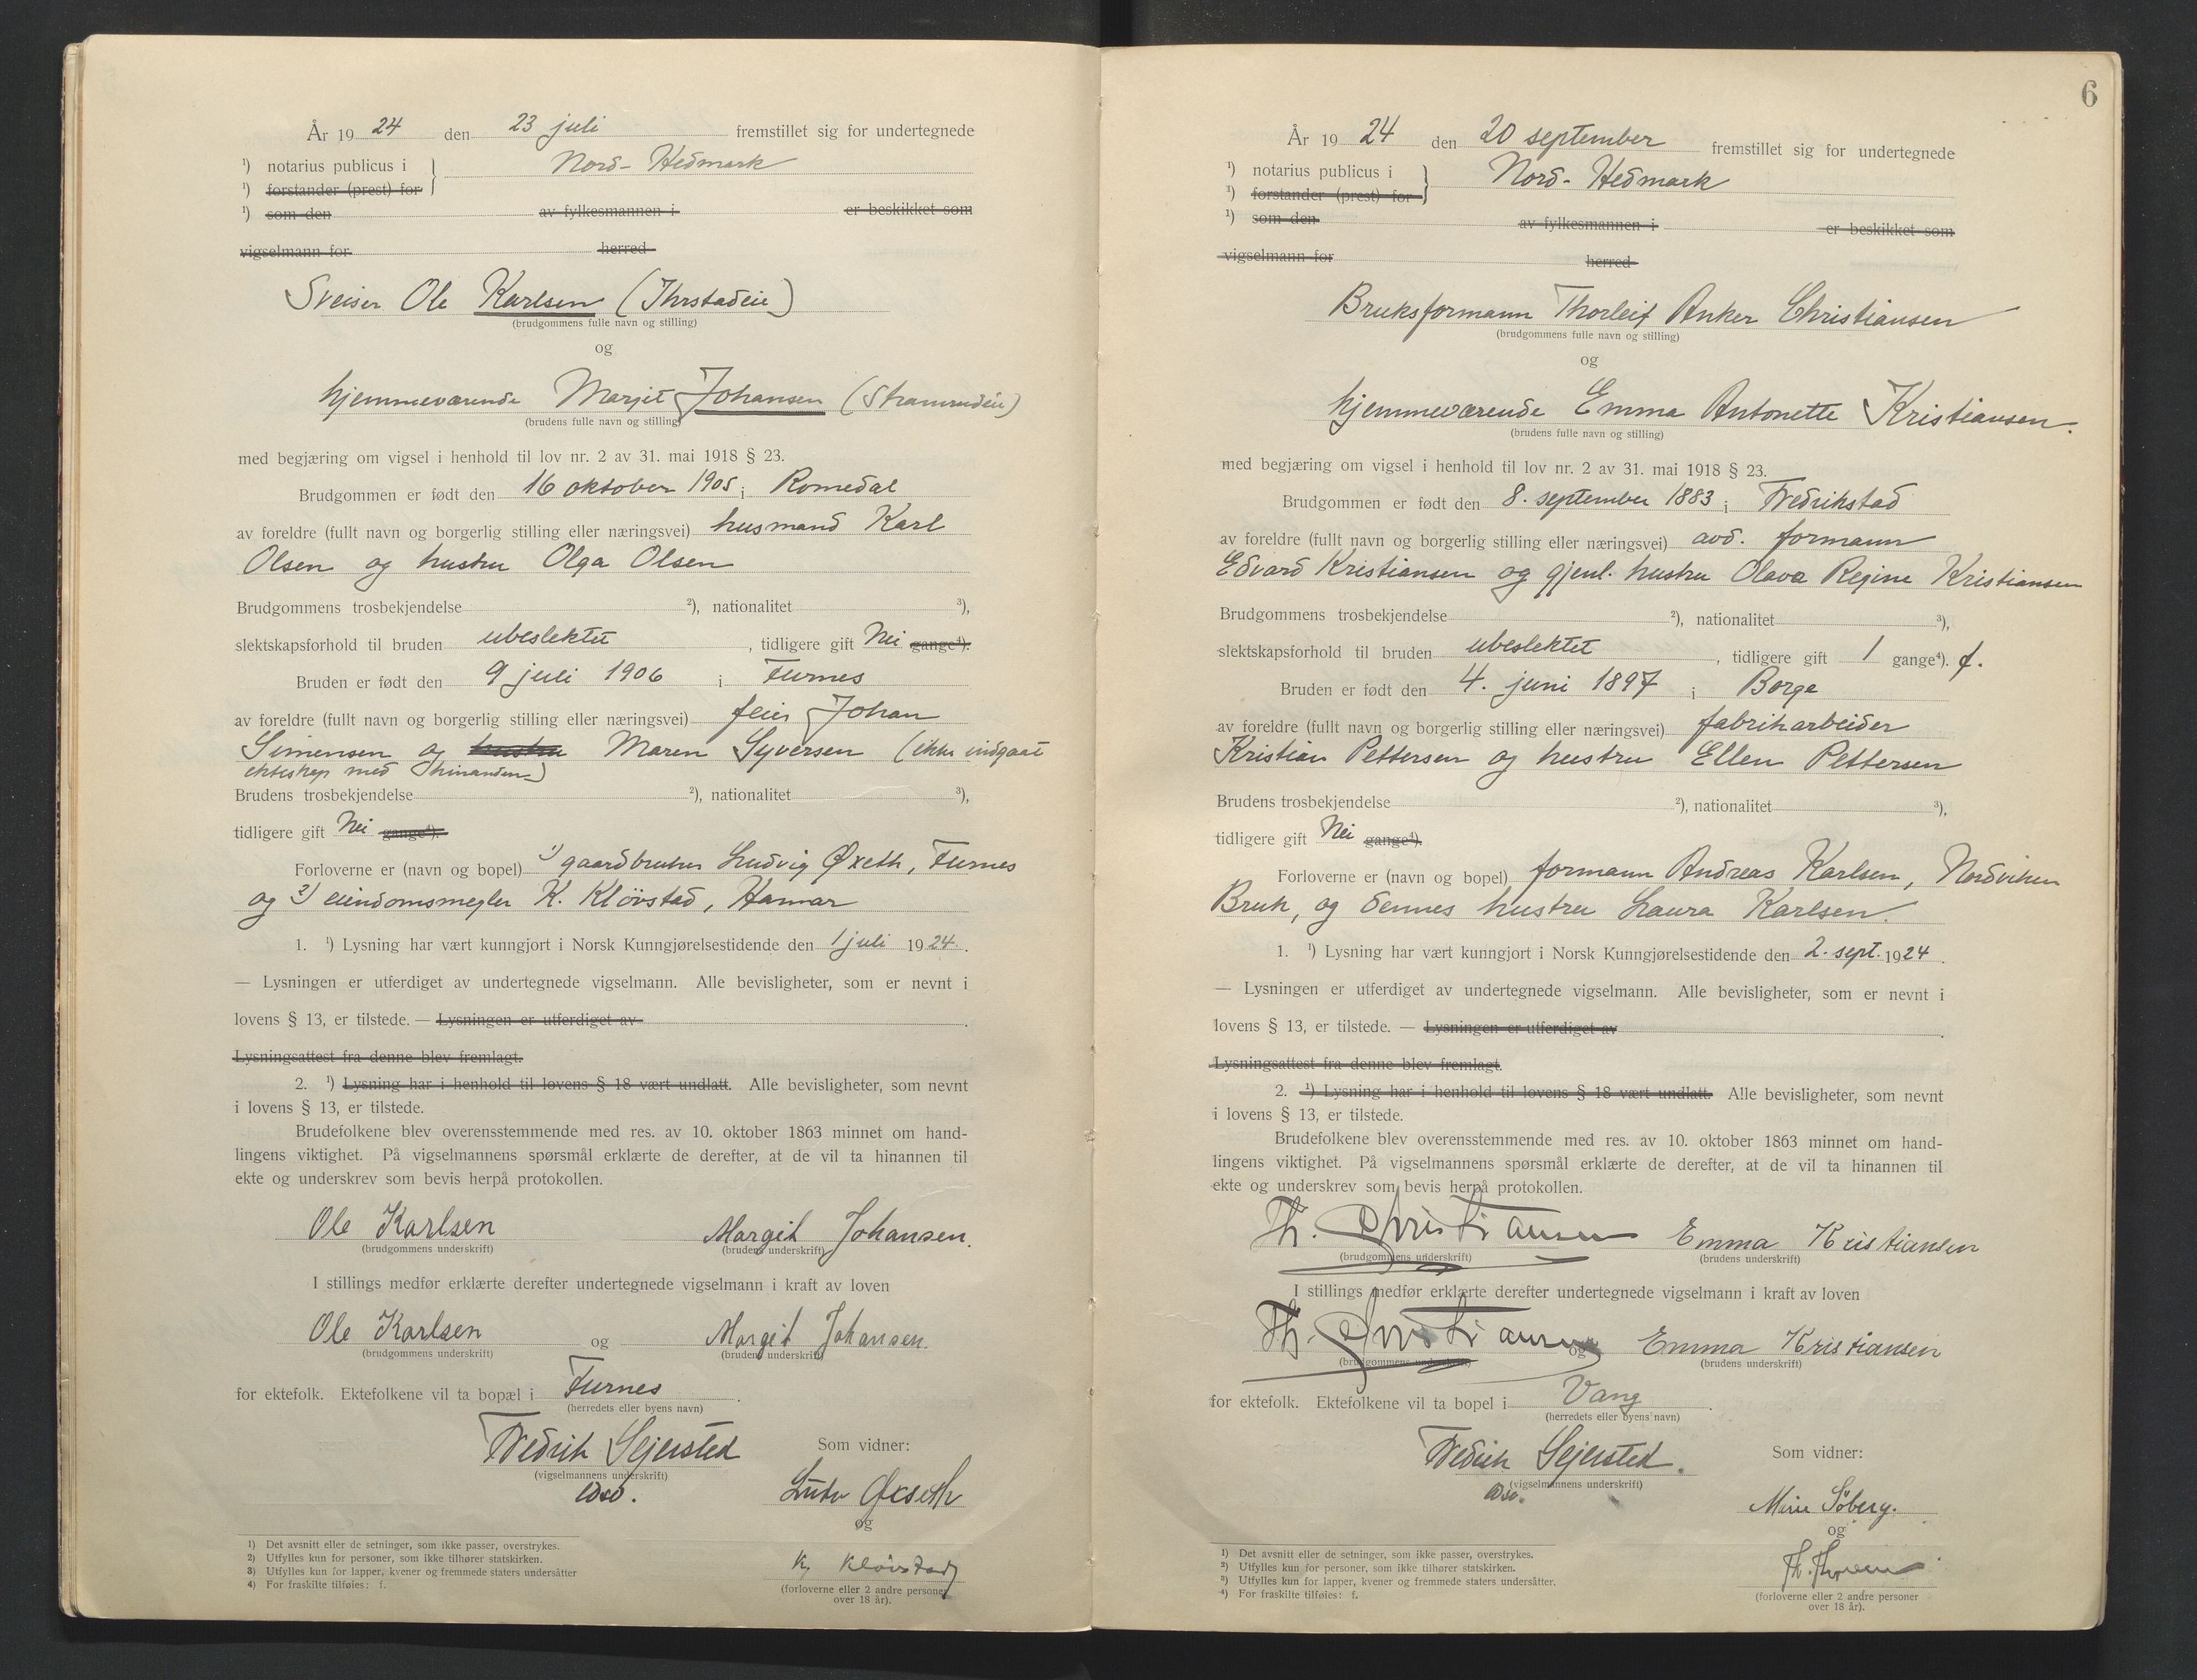 År 19 24 den 23 juli fremstillet sig for undertegnede
¹) notarius publicus i } Nord-Hedmark
¹) forstander (prest) for
¹) som den av fylkesmannen i er beskikket som
vigselmann for herred
Sveiser Ole Karlsen (Ihrstadeie)
(brudgommens fulle navn og stilling)
og
hjemmeværende Margit Johansen
(brudens fulle navn og stilling)
med begjæring om vigsel i henhold til lov nr. 2 av 31. mai 1918 § 23.
Brudgommen er født den 16 oktober 1905 i Romedal
av foreldre (fullt navn og borgerlig stilling eller næringsvei) husmand Karl
Olsen og hustru Olga Olsen
Brudgommens trosbekjendelse ²), nationalitet ³),
slektskapsforhold til bruden ubeslektet, tidligere gift Nei gange⁴).
Bruden er født den 9 juli 1906 i Furnes
av foreldre (fullt navn og borgerlig stilling eller næringsvei) feier Johan
Simensen og hustru Maren Syversen (ikke indgaat
ekteskap med hinanden)
Brudens trosbekjendelse ²), nationalitet ³),
tidligere gift Nei gange⁴).
Forloverne er (navn og bopel) 1) gaardbruker Ludvig Øxeth, Furnes
og 2) eiendomsmegler K. Klövstad, Hamar
1. ¹) Lysning har vært kunngjort i Norsk Kunngjørelsestidende den 1 juli 1924.
— Lysningen er utferdiget av undertegnede vigselmann. Alle bevisligheter, som er nevnt i
lovens § 13, er tilstede. — Lysningen er utferdiget av .
Lysningsattest fra denne blev fremlagt.
2. ¹) Lysning har i henhold til lovens § 18 vært undlatt. Alle bevisligheter, som nevnt
i lovens § 13, er tilstede.
Brudefolkene blev overensstemmende med res. av 10. oktober 1863 minnet om hand-
lingens viktighet. På vigselmannens spørsmål erklærte de derefter, at de vil ta hinannen til
ekte og underskrev som bevis herpå protokollen.
Ole Karlsen Margit Johansen.
(brudgommens underskrift) (brudens underskrift)
I stillings medfør erklærte derefter undertegnede vigselmann i kraft av loven
Ole Karlsen og Margit Johansen.
(brudgommens underskrift) (brudens underskrift)
for ektefolk. Ektefolkene vil ta bopæl i Furnes.
(herredets eller byens navn)
Fredrik Sejersted Som vidner:
(vigselmannens underskrift)
Ludv Øxseth
og
K. Klövstad
(forloverne eller 2 andre personer
over 18 år).
1) Det avsnitt eller de setninger, som ikke passer, overstrykes.
2) Utfylles kun for personer, som ikke tilhører statskirken.
3) Utfylles kun for lapper, kvener og fremmede staters undersåtter
4) For fraskilte tilføies: f.
6
År 19 24 den 20 september fremstillet sig for undertegnede
¹) notarius publicus i } Nord-Hedmark
¹) forstander (prest) for
¹) som den av fylkesmannen i er beskikket som
vigselmann for herred
Bruksformann Thorleif Anker Christiansen
(brudgommens fulle navn og stilling)
og
hjemmeværende Emma Antonette Kristiansen.
(brudens fulle navn og stilling)
med begjæring om vigsel i henhold til lov nr. 2 av 31. mai 1918 § 23.
Brudgommen er født den 8. september 1883 i Fredrikstad
av foreldre (fullt navn og borgerlig stilling eller næringsvei) avd. formann
Edvard Kristiansen og gjenl. hustru Olava Regine Kristiansen
Brudgommens trosbekjendelse ²), nationalitet ³),
slektskapsforhold til bruden ubeslektet, tidligere gift 1 gange⁴). f.
Bruden er født den 4. juni 1897 i Borge
av foreldre (fullt navn og borgerlig stilling eller næringsvei) fabrikarbeider
Kristian Pettersen og hustru Ellen Pettersen
Brudens trosbekjendelse ²), nationalitet ³),
tidligere gift Nei gange⁴).
Forloverne er (navn og bopel) formann Andreas Karlsen, Nordviken
Bruk, og dennes hustru Laura Karlsen.
1. ¹) Lysning har vært kunngjort i Norsk Kunngjørelsestidende den 2. sept. 1924.
— Lysningen er utferdiget av undertegnede vigselmann. Alle bevisligheter, som er nevnt i
lovens § 13, er tilstede. — Lysningen er utferdiget av .
Lysningsattest fra denne blev fremlagt.
2. ¹) Lysning har i henhold til lovens § 18 vært undlatt. Alle bevisligheter, som nevnt
i lovens § 13, er tilstede.
Brudefolkene blev overensstemmende med res. av 10. oktober 1863 minnet om hand-
lingens viktighet. På vigselmannens spørsmål erklærte de derefter, at de vil ta hinannen til
ekte og underskrev som bevis herpå protokollen.
Th. Christiansen Emma Kristiansen
(brudgommens underskrift) (brudens underskrift)
I stillings medfør erklærte derefter undertegnede vigselmann i kraft av loven
Th. Christiansen og Emma Kristiansen
(brudgommens underskrift) (brudens underskrift)
for ektefolk. Ektefolkene vil ta bopel i Vang.
(herredets eller byens navn)
Fredrik Sejersted. Som vidner:
(vigselmannens underskrift)
Söberg.
og
(forloverne eller 2 andre personer
over 18 år).
1) Det avsnitt eller de setninger, som ikke passer, overstrykes.
2) Utfylles kun for personer, som ikke tilhører statskirken.
3) Utfylles kun for lapper, kvener og fremmede staters undersåtter.
4) For fraskilte tilføies: f.